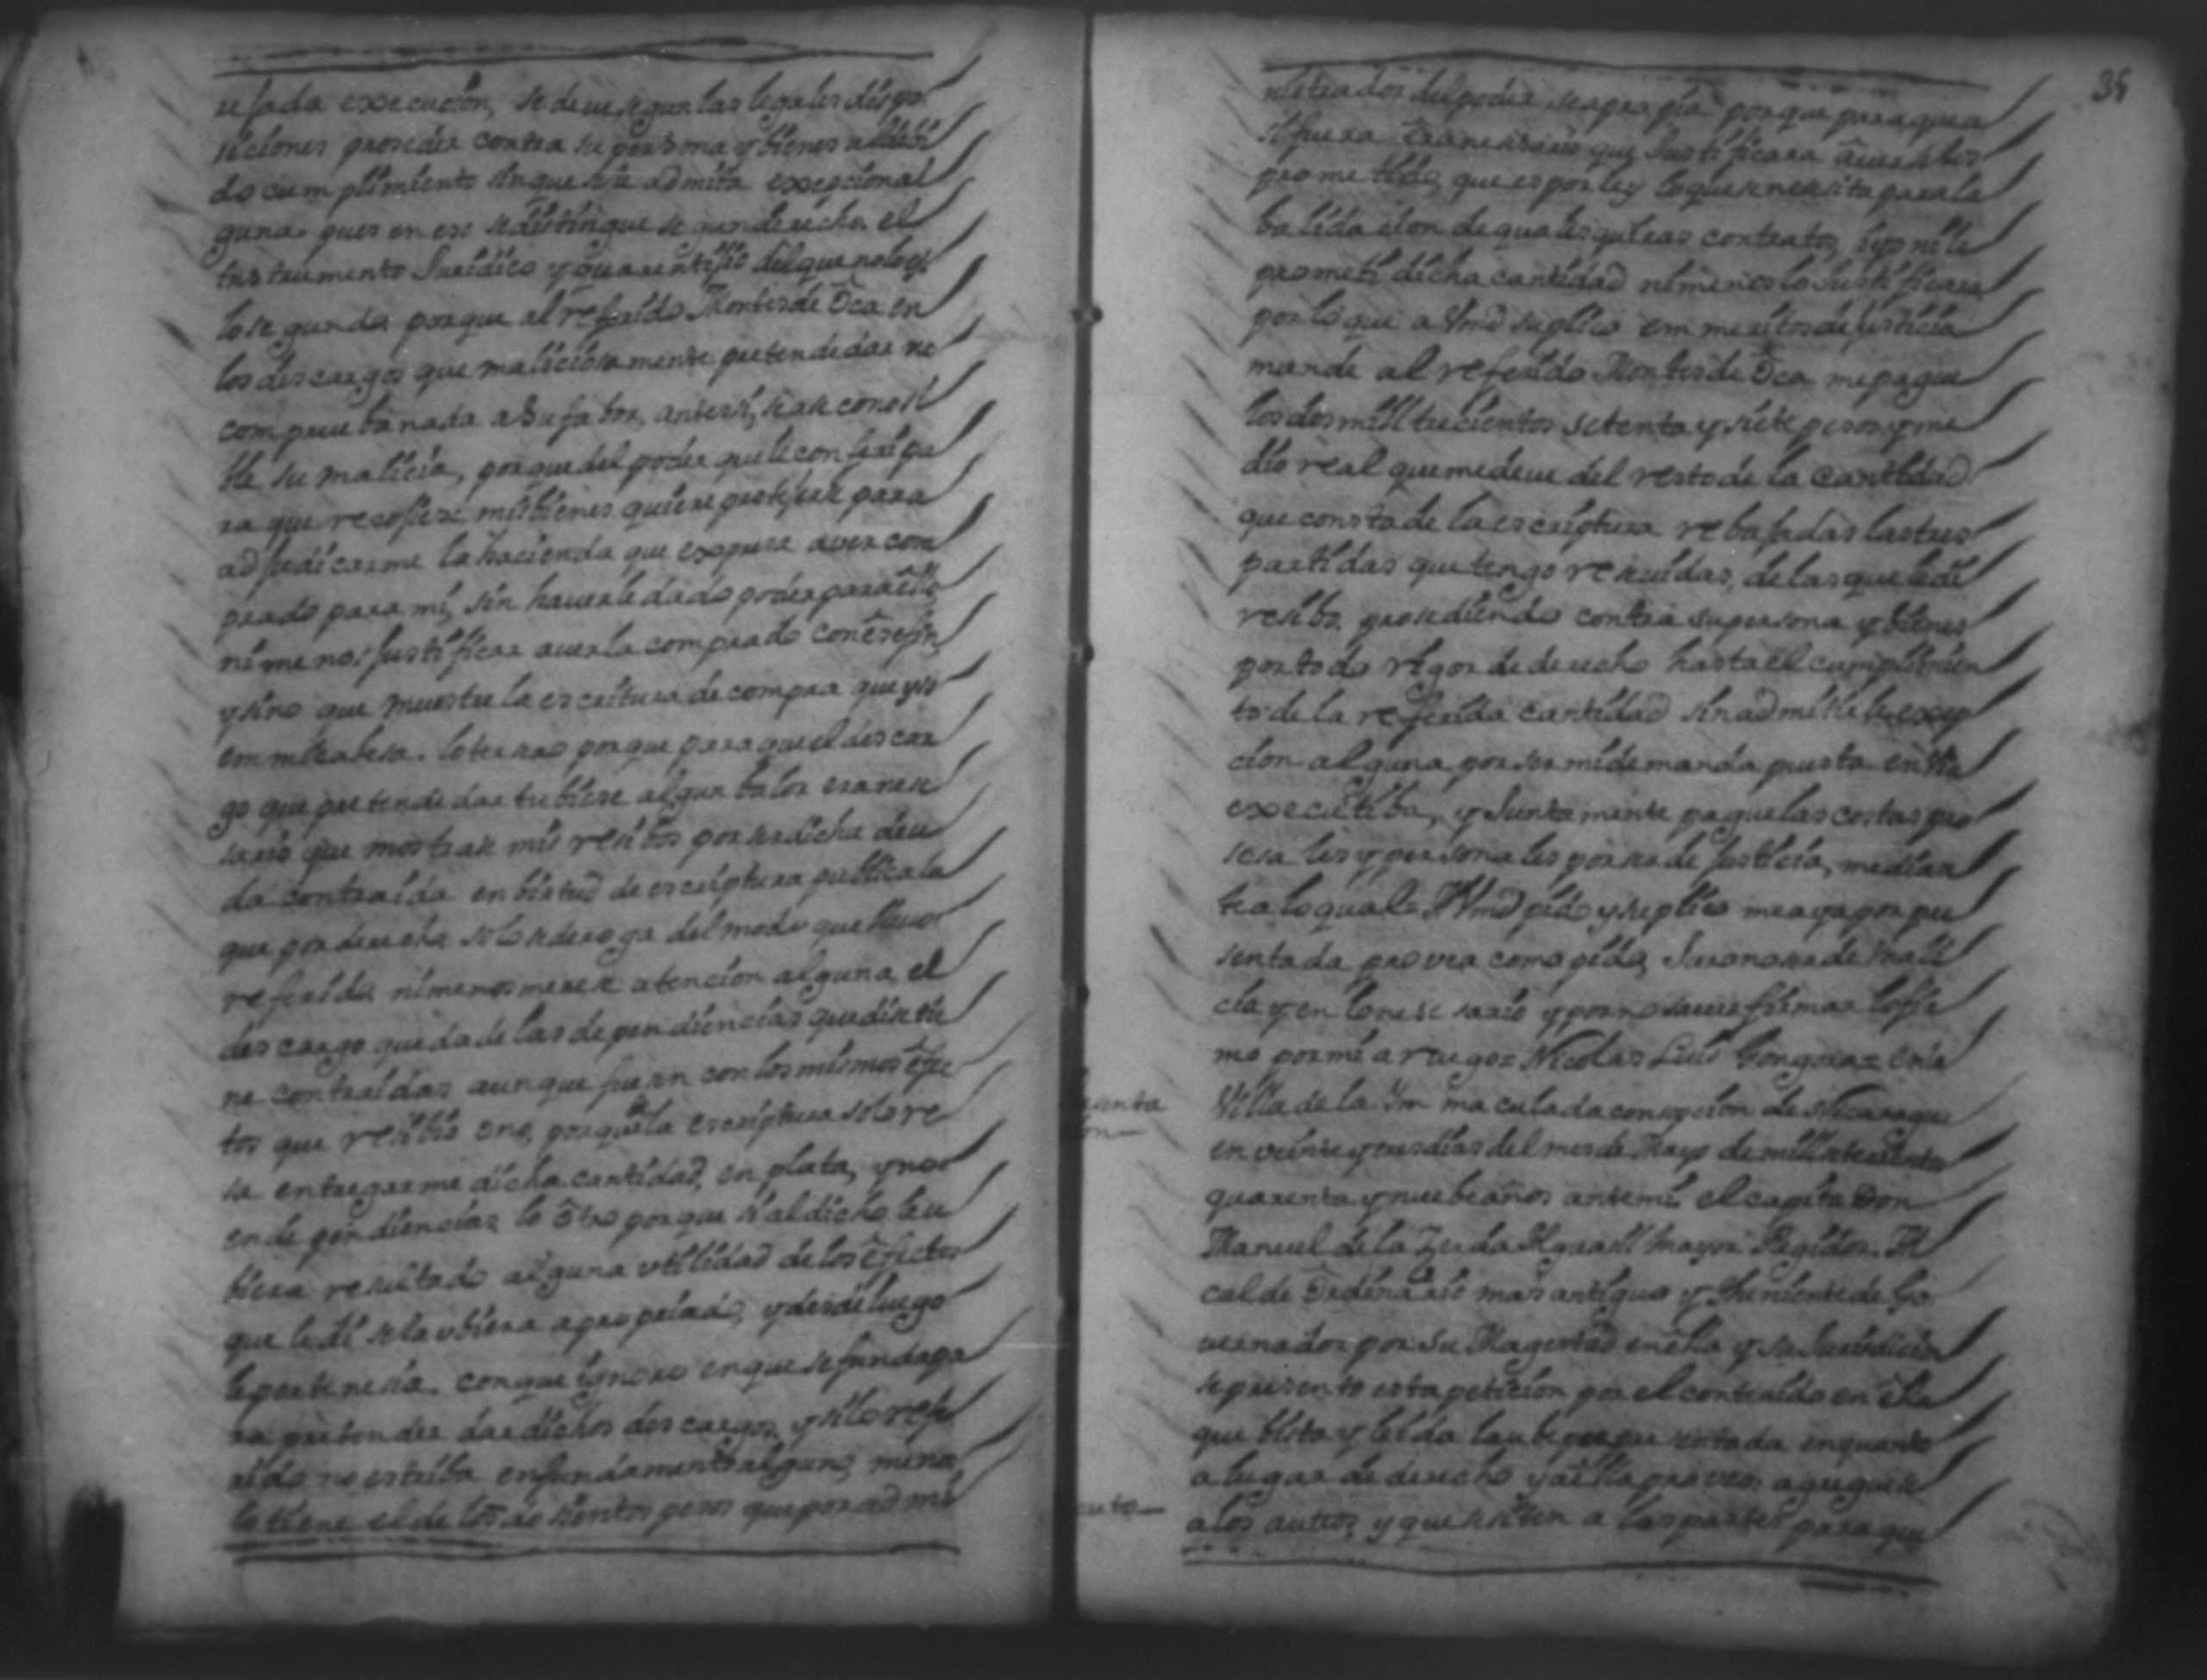 resada execucion, se deue segun las legales dispo
siciones proseder contra su persona y bienes al debi
do cumplimiento sin que se le admita excepcion al
guna. pues en eso se distingue segun derecho el
instrumento Juridico y guarentijio del que no lo es.
lo segundo porque al referido Montes de Oca en
los descargos que maliciosamente pretende dar no
comprueba nada a su fabor, antes si, se le conosi
su malicia, porque del poder que le conferi pa
ra que recojiese mis bienes quiere protejerse para
adjudicarme la hacienda que expresa aver com
prado para mi, sin hauerle dado poder para ello
ni menos justificar auerla comprado con ese fin,
y sino que muestre la escritura de compra que yso
em mi cabesa. lo tersero porque para que el descar
go que pretende dar tubiese algun balor era nese
sario que mostrase mis resibos por ser dicha deu
da contraida en birtud de escriptura publica la
que por derecho solo se deroga del modo que lleuo
referido ni menos merese atencion alguna, el
descargo que da de las dependiencias que dise tie
ne contraidas aunque fuesen con los mismos efec
tos que resibio ene, porque en la escriptura solo re
sa entregarme dicha cantidad, en plata, y no
en dependiencias lo otro porque si al dicho le u
biera resultado alguna vtilidad de los efectos
que le di se la vbiera apropeiado, y desde luego
le pertenesia. con que ignoro en que se funda pa
ra pretender dar dichos descargos, y si lo refe
rido no estriba en fundamento alguno, menos
lo tiene el de los do sientos pesos que por admi
35
nistrador del poder se apropia porque para que a
si fuera era nesesario que Justificara auerselos
prometido, que es por ley lo que se nesesita para la
balidacion de qualesquieras contratos, y yo ni le
prometi dicha cantidad ni menos lo Justificara
por lo que a Vmd suplico em meritos de justicia
mande al referido Montes de Oca me pague
los dos mill trecientos setenta y siete pesos y me
dio real que me deue del resto de la cantidad
que consta de la escriptura rebajadas las tres
partidas que tengo reseuidas, de las que le di
resibo. prosediendo contra su persona y bienes
por todo rigor de derecho hasta el cumplimien
to de la referida cantidad sin admitirle excep
cion alguna por ser mi demanda puesta en via
executiba, y Juntamente pague las costas pro
sesales y personales por ser de justicia, median
te a lo qual = A Vmd pido y suplico me aya por pre
sentada provea como pido, Juro no ser de mali
cia y en lo nesesario y por no sauer firmar lo fir
mo por mi a ruego = Nicolas Luis Gongora = en la
Villa de la Ynmaculada consepcion de Nicaragua
en veinte y tres dias del mes de Mayo de mill setesientos
quarenta y nuebe años ante mi el capitan Don
Manuel de la Zerda Alguasil mayor Regidor. Al
calde Ordinario mas antiguo y Theniente de Go
uernador por Su Magestad en ella y su Juridicion
se presento esta peticion por el contenido en ela
que bista y leida la ube por presentada en quanto
a lugar de derecho y a ella proveo. agreguese
a los autos, y que se siten a las partes para que